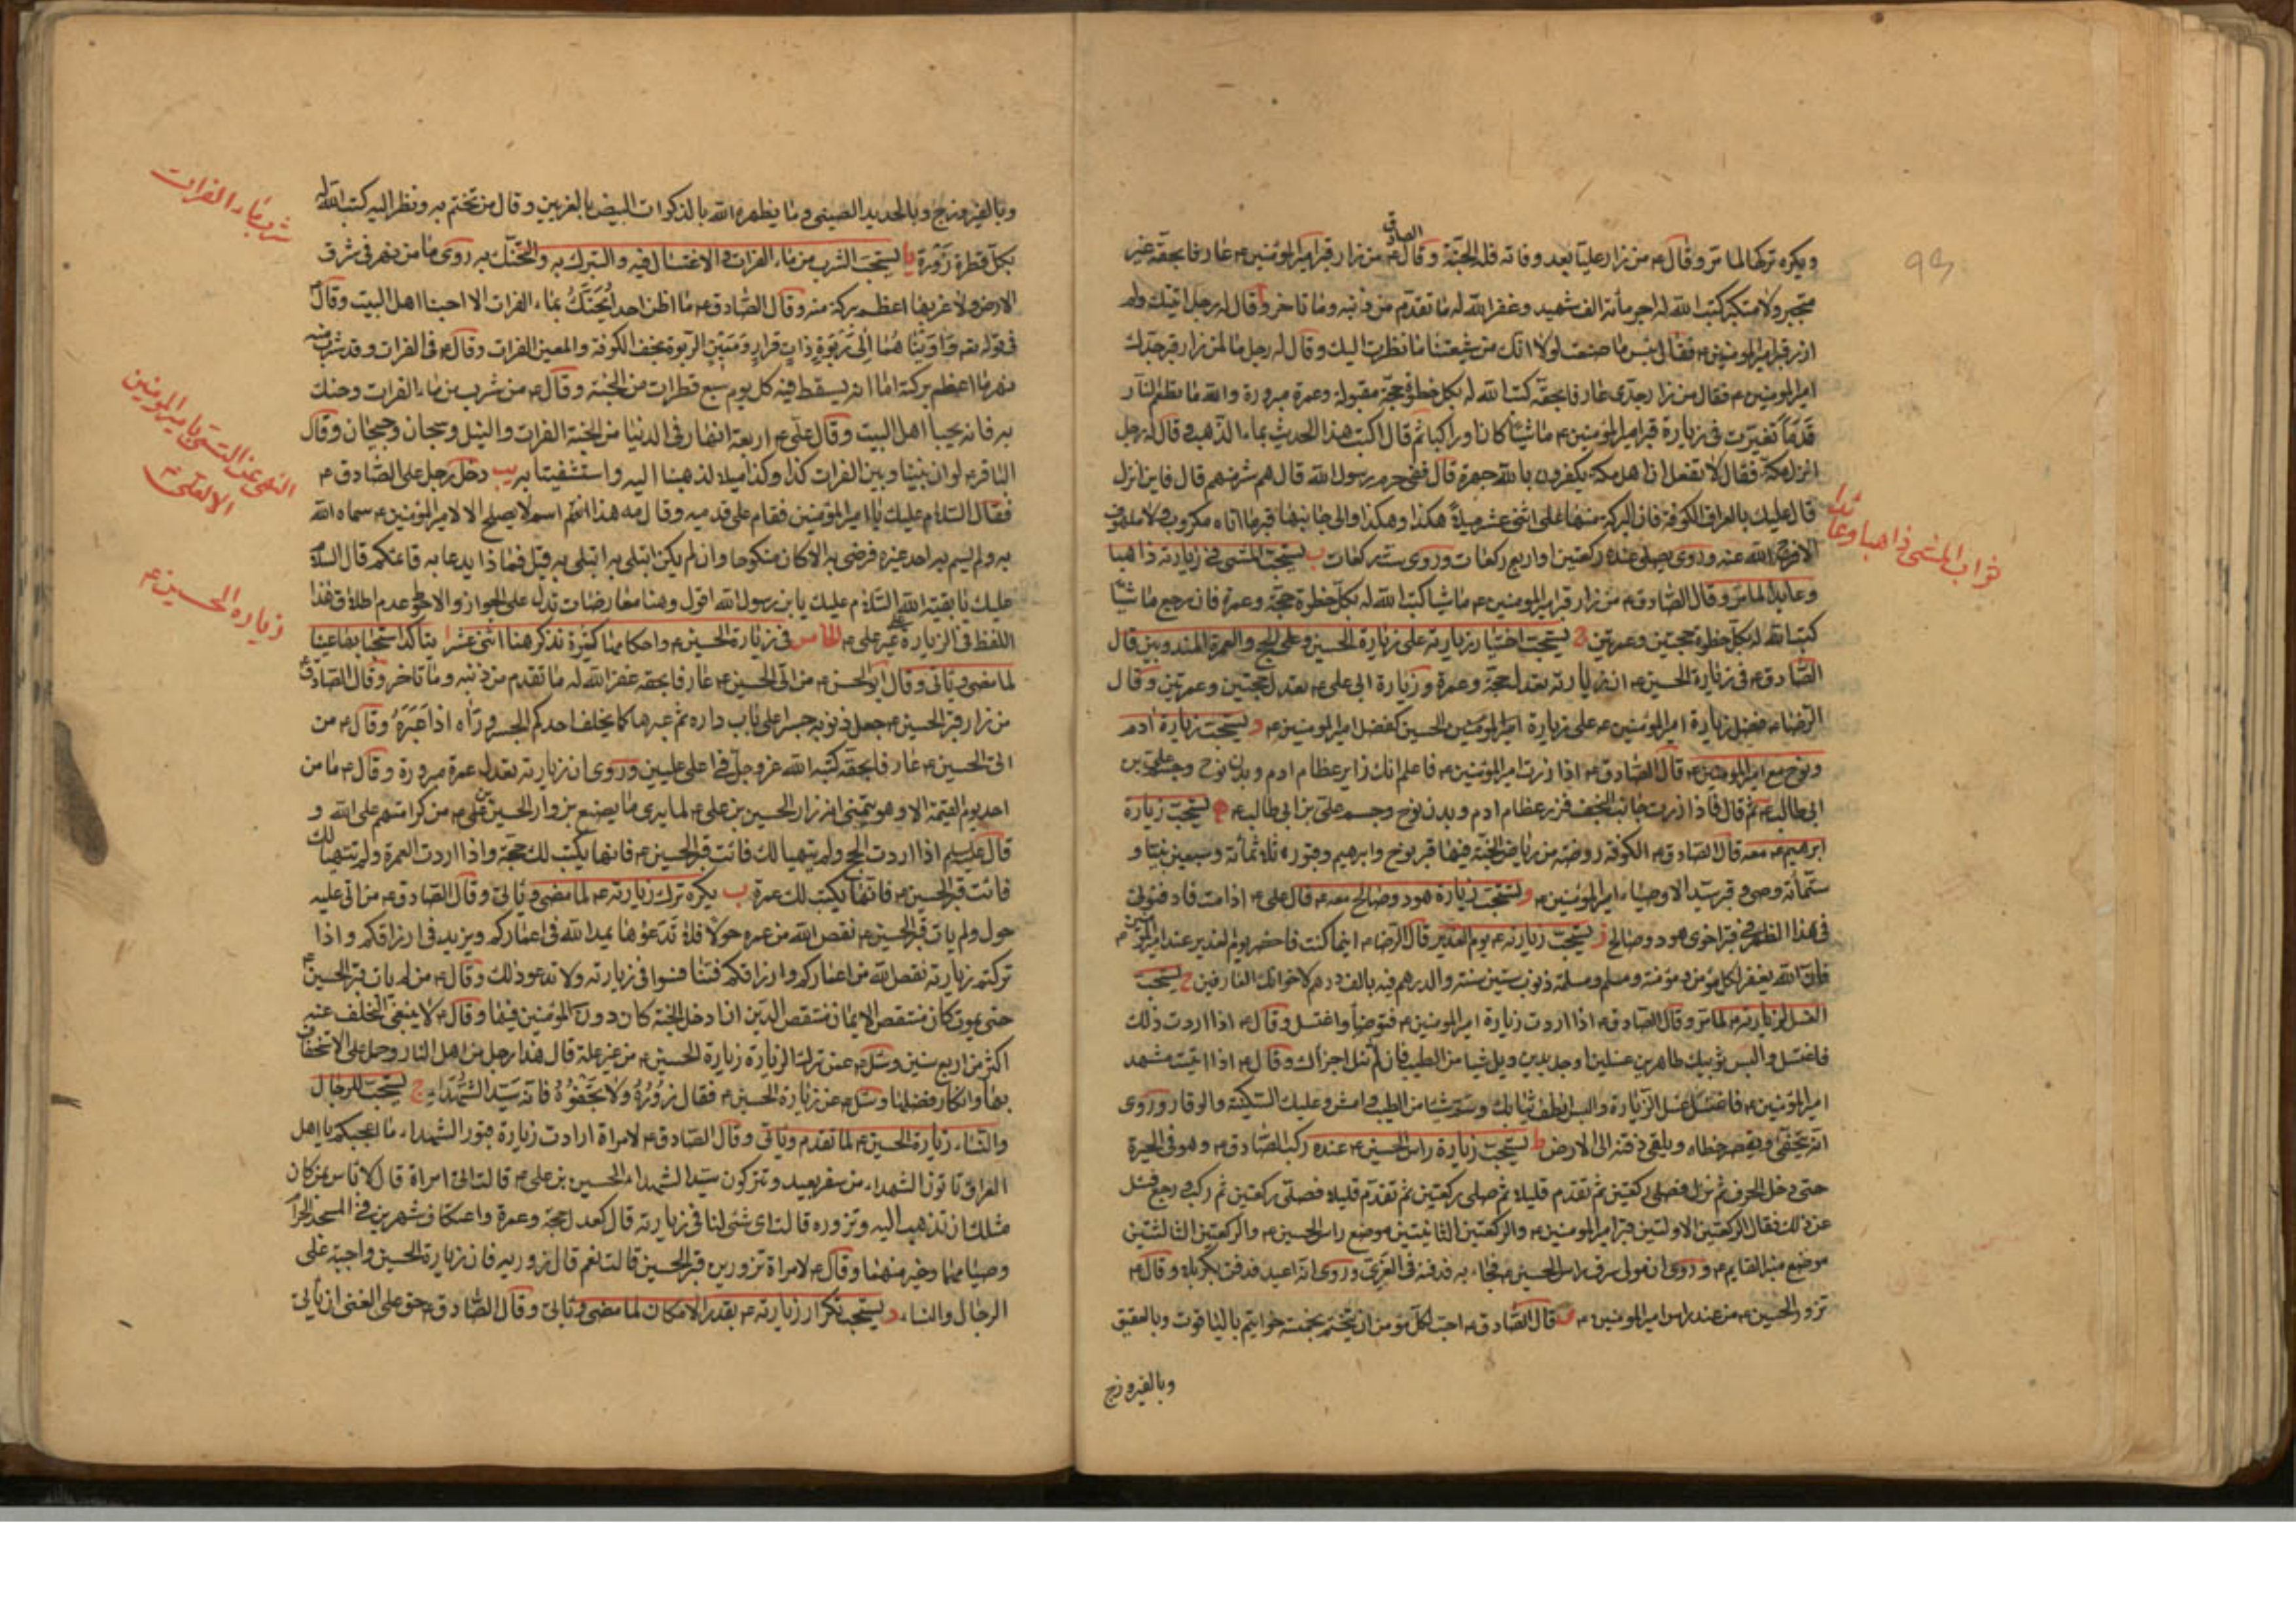 ويكره تركها لما مر وقال ع من زار عليا بعد وفاته فله الجنة وقال الصادق ع من زار قبر امير المؤمنين ع عارفا بحقه غير
متجبر ولا متكبر كتب الله له اجر مأة الف شهيد وغفر الله له ما تقدم من ذنبه وما تاخر وقال له رجل اتيتك ولم
ازر قبر امير المؤمنين ع فقال بئس ما صنعت لولا انك من شيعتنا ما نظرت اليك وقال له رجل ما لمن زار قبر جدك
امير المؤمنين ع فقال من زار جدي عارفا بحقه كتب الله له بكل خطوة حجة مقبولة وعمرة مبرورة والله ما تطعم النار
قدما تغبرت في زيارة قبر امير المؤمنين ع ماشيا كان او راكبا ثم قال اكتب هذا الحديث بماء الذهب وقال له رجل
انزل مكة فقال لا تفعل ان اهل مكة يكفرون بالله جهرة قال ففي حرم رسول الله قال هم شر منهم قال فاين انزل
قال عليك بالعراق الكوفة فان البركة منها على اثنى عشر ميلا هكذا وهكذا والى جانبها قبر ما اتاه مكروب ولا ملهوف
الا فرج الله عنه وروى يصلى عنده ركعتين او اربع ركعات وروى ست ركعات ب يستحب المشى في زيارته ذاهبا
وعايدا لما مر وقال الصادق ع من زار قبر امير المؤمنين ع ماشيا كتب الله له بكل خطوة حجة وعمرة فان رجع ماشيا
كتب الله له بكل خطوة حجتين وعمرتين ج يستحب اختيار زيارته على زيارة الحسين وعلى الحج والعمرة المندوبين قال
الصادق ع في زيارة الحسين ع ان زيارته تعدل حجة وعمرة وزيارة ابي علي ع تعدل حجتين وعمرتين وقال
الرضا ع فضل زيارة امير المؤمنين ع على زيارة الحسين كفضل امير المؤمنين ع د يستحب زيارة ادم
ونوح مع امير المؤمنين ع قال الصادق ع اذا زرت امير المؤمنين ع فاعلم انك زاير عظام ادم وبدن نوح وجسم علي بن
ابى طالب ع ثم قال فاذا زرت جانب النجف فزر عظام ادم وبدن نوح وجسم علي بن ابي طالب ع ه يستحب زيارة
ابرهيم ع معه قال الصادق ع الكوفة روضة من رياض الجنة فيها قبر نوح وابرهيم وقبور ثلثمائة وسبعين نبيا و
ستمأته وصي وقبر سيد الاوصياء امير المؤمنين ع و يستحب زيارة هود وصالح معه ع قال علي ع اذا مت فادفنوني
في هذا الظهر في قبر اخوى هود وصالح ز يستحب زيارته ع يوم الغدير قال الرضا ع اينما كنت فاحضر يوم الغدير عند امير المؤمنين ع
فان الله يغفر لكل مؤمن ومؤمنة ومسلم ومسلمة ذنوب ستين سنة والدرهم فيه بالف درهم لاخوانك العارفين ح يستحب
الغسل لزيارته ع لما مر وقال الصادق ع اذا اردت زيارة امير المؤمنين ع فتوضأ واغتسل وقال ع اذا اردت ذلك
فاغتسل والبس ثوبيك طاهرين غسلين او جديدين ونل شيا من الطيب فان لم تنل اجزأك وقال ع اذا اتيت مشهد
امير المؤمنين ع فاغتسل غسل الزيارة والبس انظف ثيابك وشم شيا من الطيب وامش وعليك السكينة والوقار وروى
انه يتحفى ويقصر خطاه ويلقى ذقنه الى الارض ط يستحب زيارة راس الحسين ع عنده ركب الصادق ع وهو في الحيرة
حتى دخل الجرف ثم نزل فصلى ركعتين ثم تقدم قليلا ثم صلى ركعتين ثم تقدم قليلا فصلى ركعتين ثم ركب ورجع فسئل
عن ذلك فقال الركعتين الاولتين قبر امير المؤمنين ع والركعتين الثانيتين موضع راس الحسين ع والركعتين الثالثتين
موضع منبر القايم ع وروى ان مولى سرق راس الحسين ع فجاء به فدفنه في الغري وروى انه اعيد فدفن بكربلاء وقال ع
تزور الحسين ع من عند راس امير المؤمنين ع ى قال الصادق ع احب لكل مؤمن ان يتختم بخمسة خواتيم بالياقوت وبالعقيق
وبالفيروزج
ثواب المشى ذاهبا وعائدا
وبالفيروزج وبالحديد الصينى وما يظهره الله بالذكوات البيض بالغريين وقال من تختم به ونظر اليه كتب الله له
بكل قطرة زورة يا يستحب الشرب من ماء الفرات والاغتسال فيه والتبرك به والتحنك به روى ما من نهر في شرق
الارض ولا غربها اعظم بركة منه وقال الصادق ع ما اظن احدا يحنك بماء الفرات الا احبنا اهل البيت وقال ع
في قوله تعه واويناهما الى ربوة ذات قرار ومعين الربوة نجف الكوفة والمعين الفرات وقال ع في الفرات وقد شرب منه
نهر ما اعظم بركته اما انه يسقط فيه كل يوم سبع قطرات من الجنة وقال ع من شرب من ماء الفرات وحنك
به فانه يحبنا اهل البيت وقال علي ع اربعة انهار في الدنيا من الجنة الفرات والنيل وسيحان وجيحان وقال
الباقر ع لو ان بيننا وبين الفرات كذا وكذا ميلا لذهبنا اليه واستشفينا به يب دخل رجل على الصادق ع
فقال السلام عليك يا امير المؤمنين فقام على قدميه وقال مه هذا اسم لا يصلح الا لامير المؤمنين ع سماه الله
به ولم يسم به احد غيره فرضى به الا كان منكوحا وان لم يكن ابتلى به ابتلى به قيل فماذا يدعا به قائمكم قال السلام
عليك يا بقية الله السلام عليك يا بن رسول الله اقول وهنا معارضات تدل على الجواز والاحوط عدم اطلاق هذا
اللفظ في الزيارة على غير علي ع الخامس في زيارة الحسين ع واحكامها كثيرة نذكر هنا اثنى عشر ا يتاكد استحبابها عينا
لما مضى وياتى وقال ابو الحسن ع من اتى الحسين ع عارفا بحقه غفر الله له ما تقدم من ذنبه وما تاخر وقال الصادق ع
من زار قبر الحسين ع جعل ذنوبه جسرا على باب داره ثم عبرها كما يخلف احدكم الجسر وراه اذا عبره وقال ع من
اتى الحسين ع عارفا بحقه كتبه الله عز وجل في اعلى عليين وروى ان زيارته تعدل عمرة مبرورة وقال ع ما من
احد يوم القيمة الا وهو يتمنى انه زار الحسين بن علي ع لما يرى ما يصنع بزوار الحسين بن علي ع من كرامتهم على الله و
قال ع اذا اردت الحج ولم يتهيا لك فائت قبر الحسين ع فانها يكتب لك حجة واذا اردت العمرة ولم يتهيا لك
فائت قبر الحسين ع فانها يكتب لك عمرة ب يكره ترك زيارته ع لما مضى وياتى وقال الصادق ع من اتى عليه
حول ولم يات قبر الحسين ع نقص الله من عمره حولا فلا تدعوها يمد الله في اعماركم ويزيد في ارزاقكم واذا
تركتم زيارته نقص الله من اعماركم وارزاقكم فتنافسوا في زيارته ولا تدعوا ذلك وقال ع من لم يات قبر الحسين ع
حتى يموت كان منتقص الايمان منتقص الدين ان ادخل الجنة كان دون المؤمنين فيها وقال ع لا ينبغى التخلف عنه
اكثر من اربع سنين وسئل ع عمن ترك الزيارة زيارة الحسين ع من غير علة قال هذا رجل من اهل النار وحمل على الاستخفاف
بها وانكار فضلها وسئل ع عن زيارة الحسين ع فقال زوروه ولا تجفوه فانه سيد الشهداء ج يستحب للرجال
والنساء زيارة الحسين ع لما تقدم وياتى وقال الصادق ع لامراة ارادت زيارة قبور الشهداء ما اعجبكم يا اهل
العراق تاتون الشهداء من سفر بعيد وتتركون سيد الشهداء الحسين بن علي ع قالت اني امراة قال لا باس بمن كان
مثلك ان تذهب اليه وتزوره قالت اى شئى لنا في زيارته قال كعدل حجة وعمرة واعتكاف شهرين في المسجد الحرام
وصيامها وخير منهما وقال ع لامراة تزورين قبر الحسين قالت نعم قال زوريه فان زيارة الحسين واجبة على
الرجال والنساء د يستحب تكرار زيارته ع بقدر الامكان لما مضى وياتى وقال الصادق ع حق على الغنى ان ياتى
شرب ماء الفرات
النهى عن التسمى بامير المؤمنين
الا لعلى ع
زيارة الحسين ع